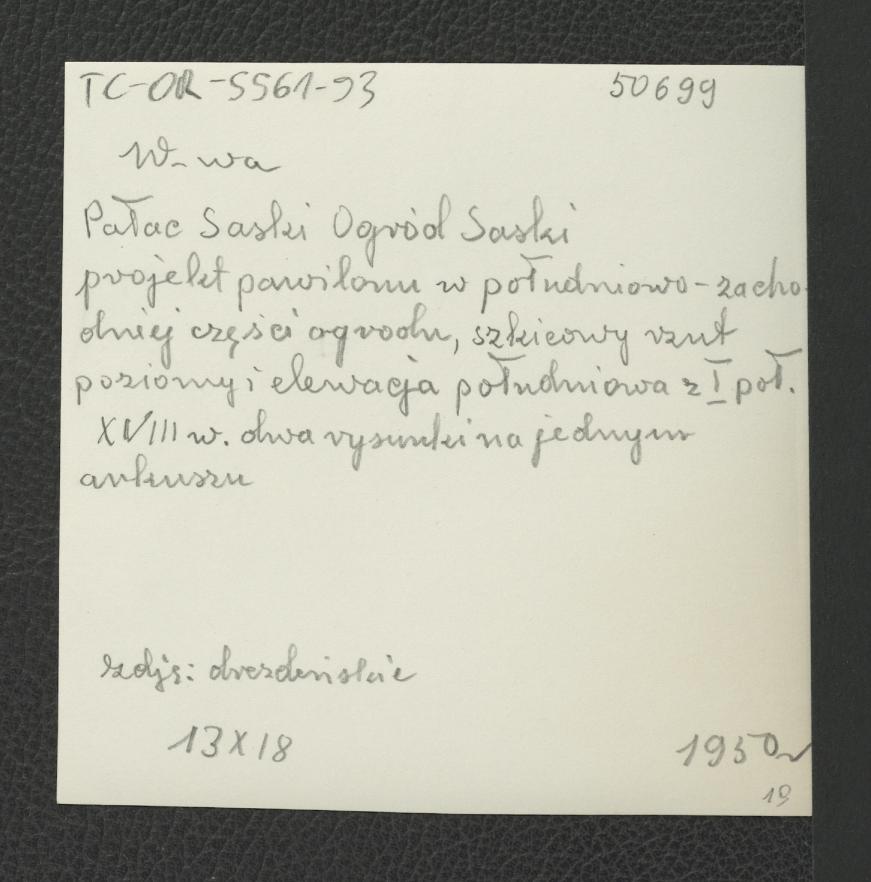 TC-OR-5561-93 50699
W-wa
Pałac Saski Ogród Saski
projekt pawilonu w południowo-zacho-
dniej części ogrodu, szkicowy rzut
poziomy i elewacja południowa z I poł.
XVIII w. dwa rysunki na jednym
arkuszu
zdję: drezdeńskie
13x18 1950r
19